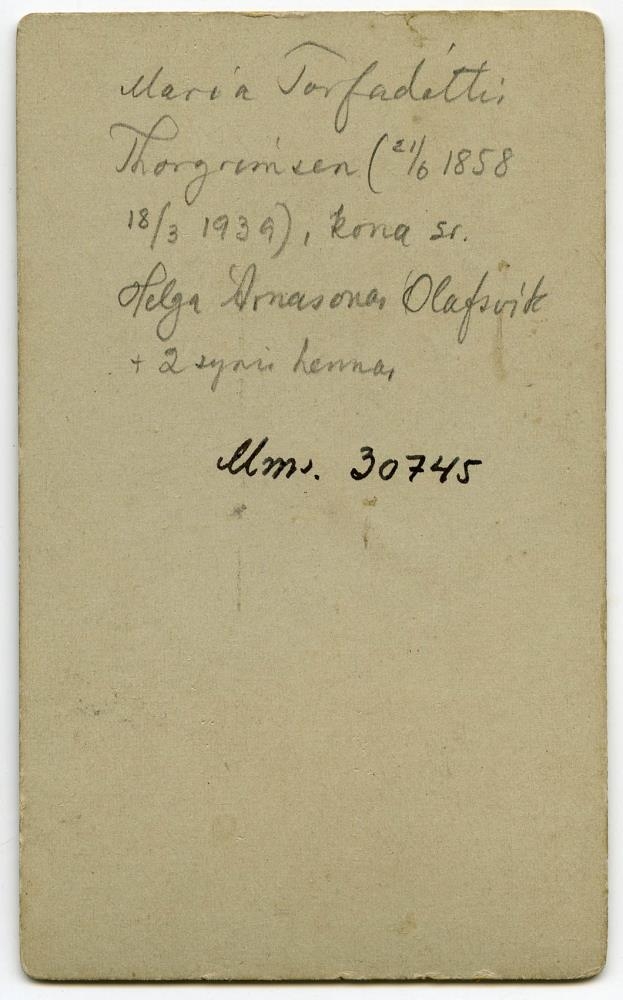 María Torfadóttir
Thorgrimsen (21/6 1858
18/3 1939), kona sr.
Helga Árnasonar Ólafsvík
+ 2 synir hennar
Mms. 30745